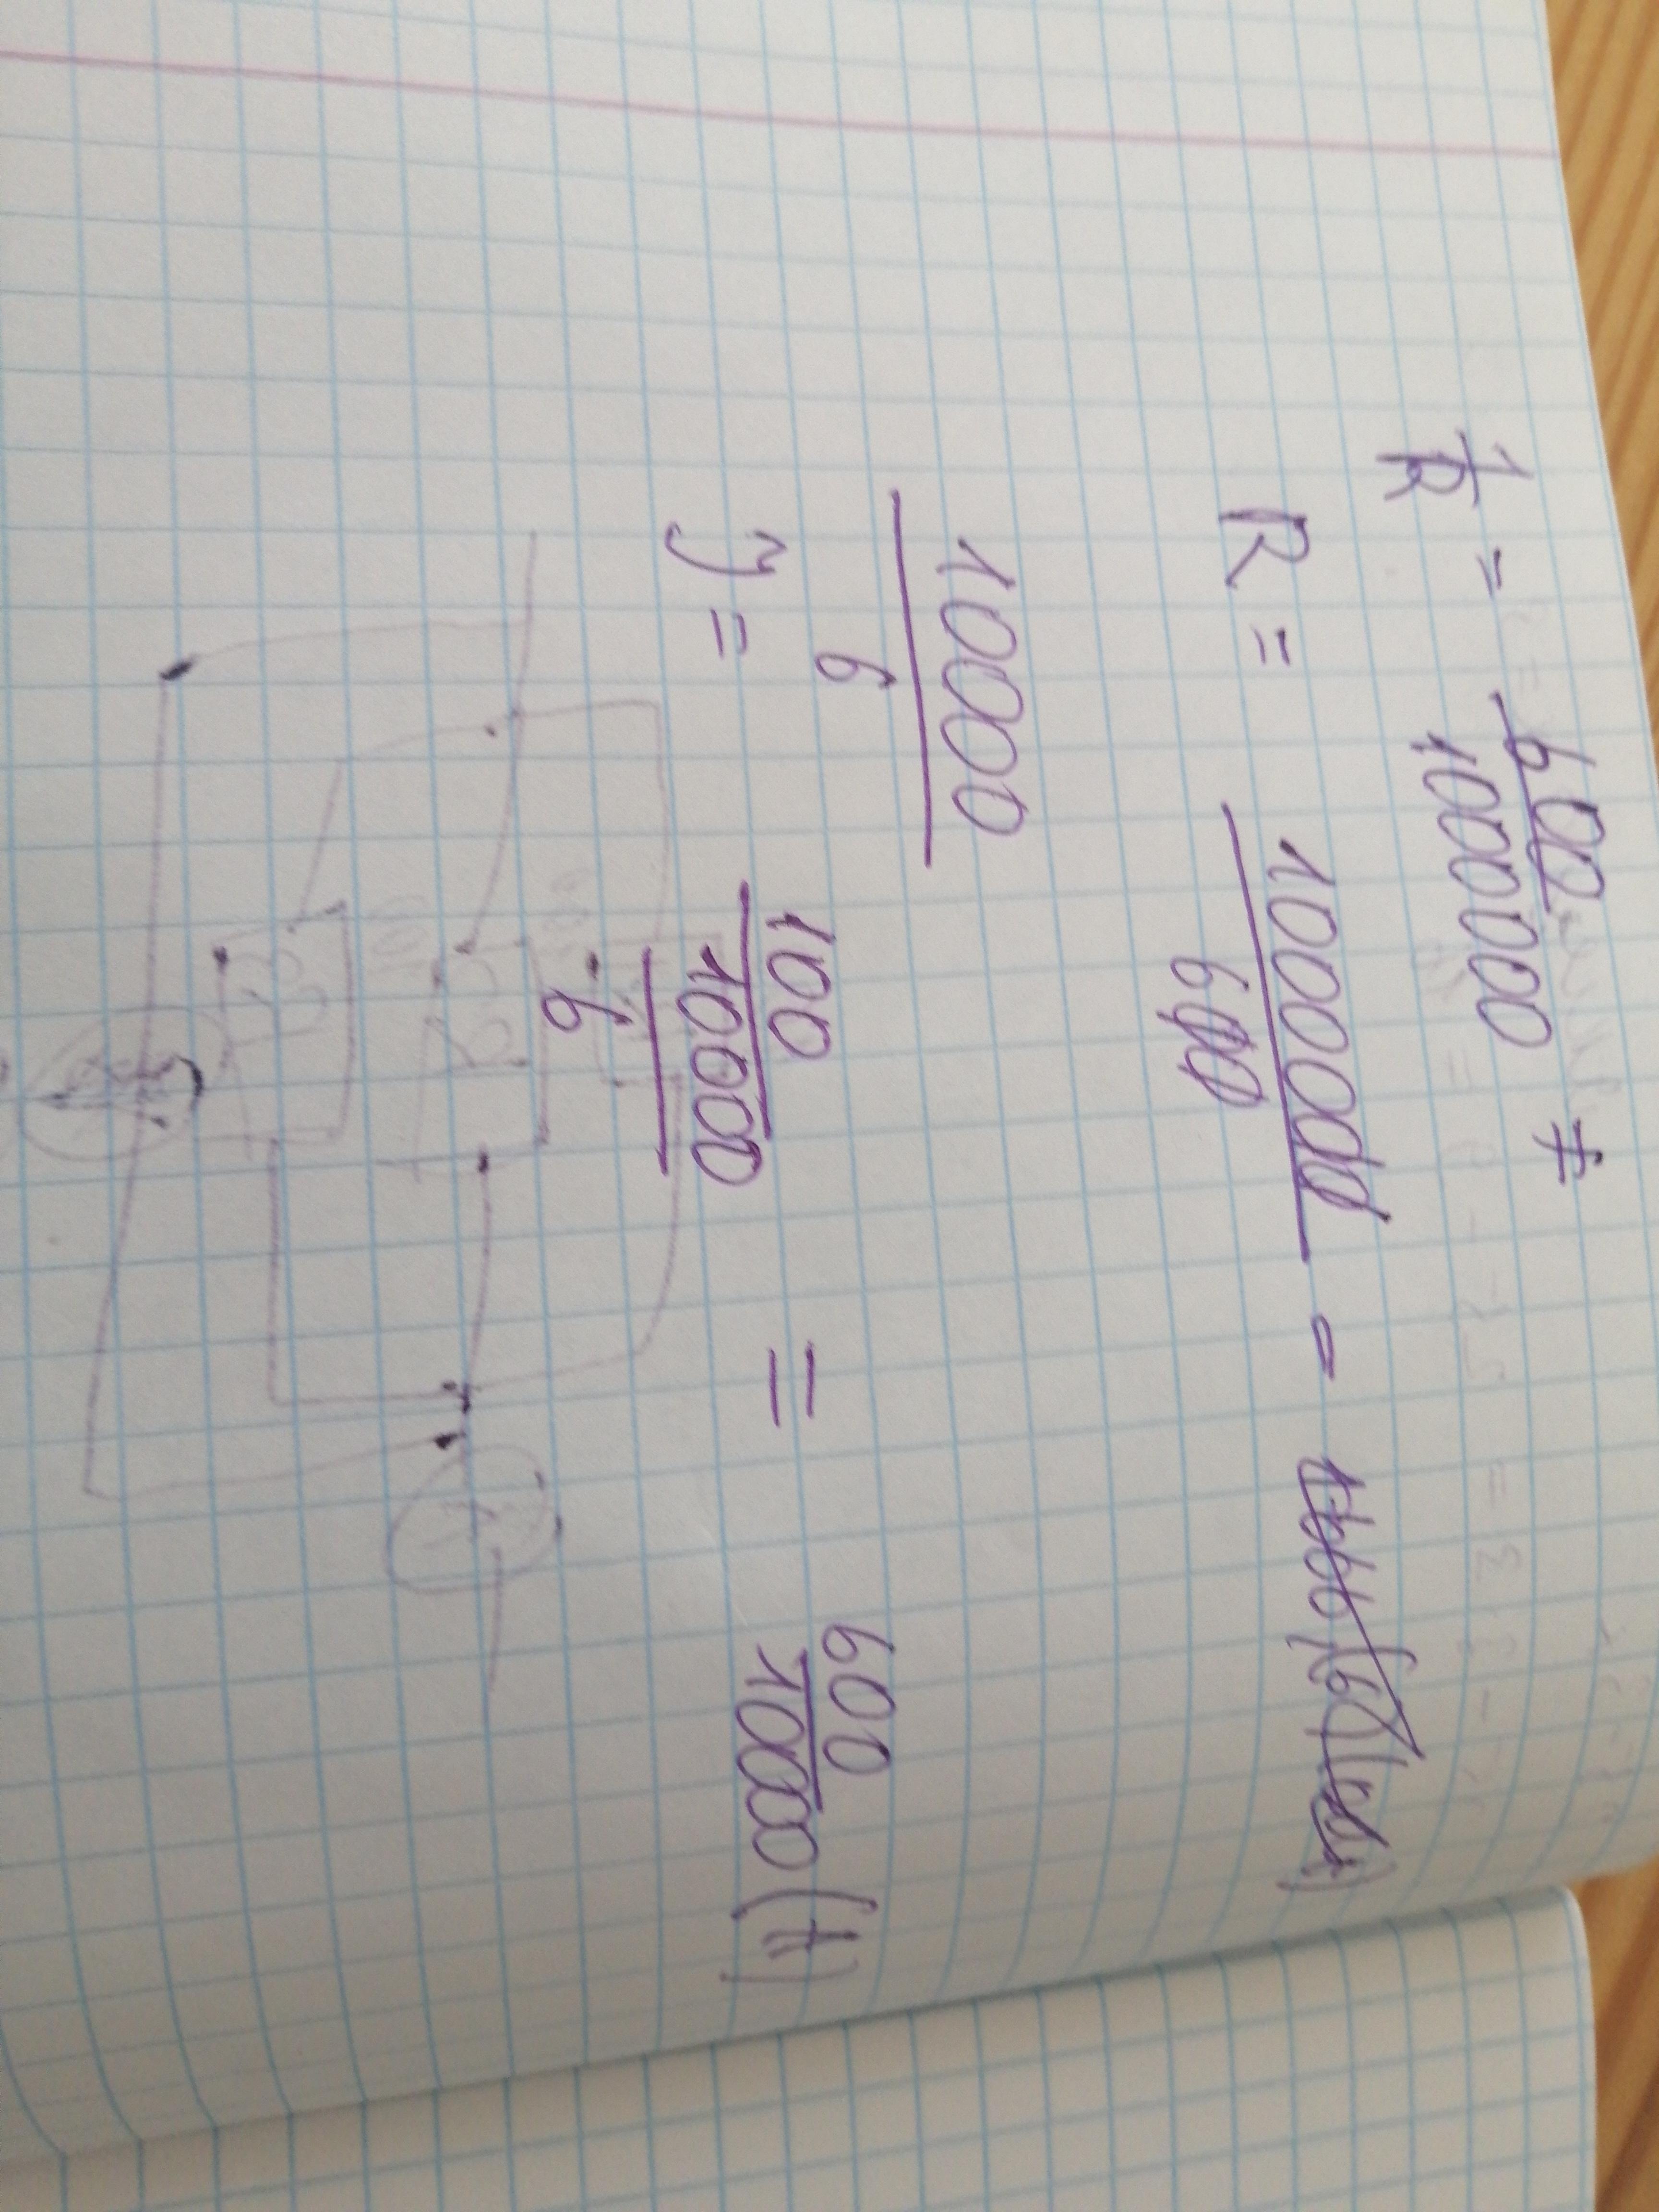 1/R = 600/1000000 ≠
R = 1000000/600 =
10000/6
У = 100/(10000/6) = 600/10000 (A)